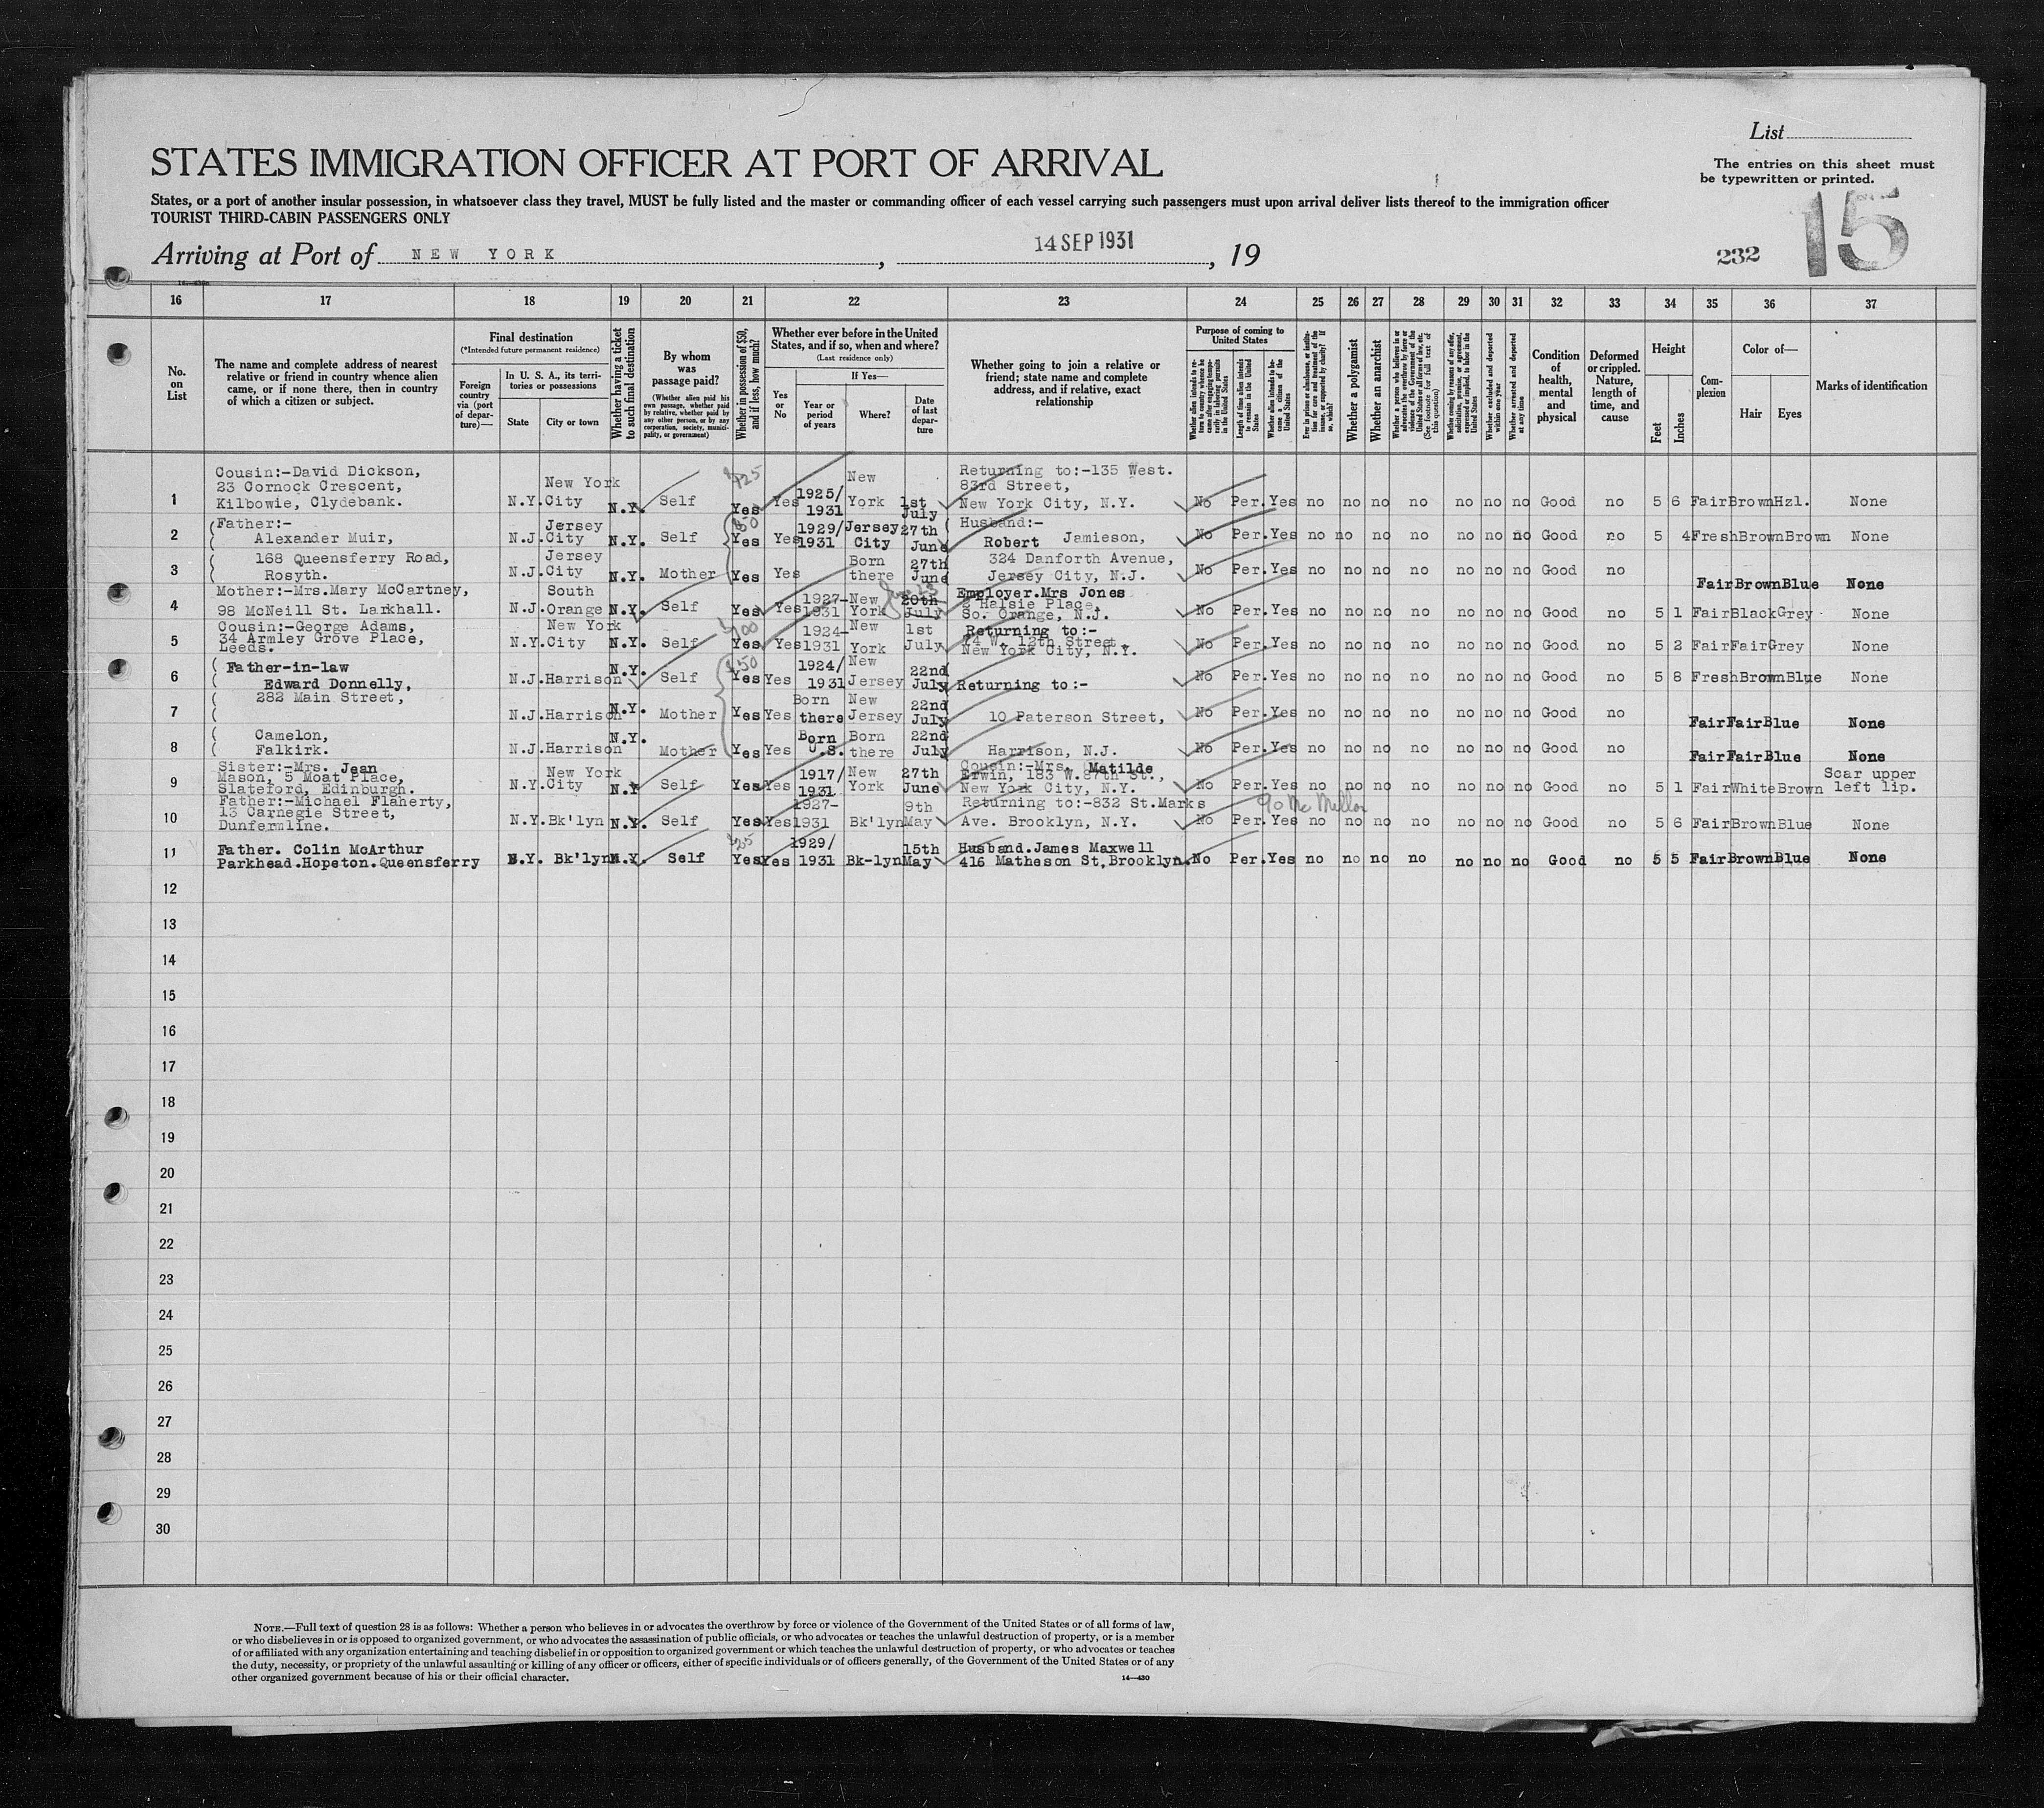 List
STATES IMMIGRATION OFFICER AT PORT OF ARRIVAL
The entries on this sheet must
be typewritten or printed.
States, or a port of another insular possession, in whatsoever class they travel, MUST be fully listed and the master or commanding officer of each vessel carrying such passengers must upon arrival deliver lists thereof to the immigration officer
TOURIST THIRD-CABIN PASSENGERS ONLY
Arriving at Port of NEW YORK, 14 SEP 1931, 19
232 15
16 17 18 19 20 21 22 23 24 25 26 27 28 29 30 31 32 33 34 35 36 37
No. on List
The name and complete address of nearest relative or friend in country whence alien came, or if none there, then in country of which a citizen or subject.
Final destination
(*Intended future permanent residence)
Foreign country via (port of departure)—
In U. S. A., its territories or possessions
State
City or town
Whether having a ticket to such final destination
By whom was passage paid?
(Whether alien paid his own passage, whether paid by relative, whether paid by any other person, or by any corporation, society, municipality, or government)
Whether in possession of $50, and if less, how much?
Whether ever before in the United States, and if so, when and where?
(Last residence only)
If Yes—
Yes or No
Year or period of years
Where?
Date of last departure
Whether going to join a relative or friend; state name and complete address, and if relative, exact relationship
Purpose of coming to United States
Whether alien intends to return to country whence he came after engaging temporarily in laboring pursuits in the United States
Length of time alien intends to remain in the United States
Whether alien intends to become a citizen of the United States
Ever in prison or almshouse, or institution for care and treatment of the insane, or supported by charity? If so, which?
Whether a polygamist
Whether an anarchist
Whether a person who believes in or advocates the overthrow by force or violence of the Government of the United States or all forms of law, etc. (See footnote for full text of this question)
Whether coming by reasons of any offer, solicitation, promise, or agreement, expressed or implied, to labor in the United States
Whether excluded and deported within one year
Whether arrested and deported at any time
Condition of health, mental and physical
Deformed or crippled. Nature, length of time, and cause
Height
Feet
Inches
Complexion
Color of—
Hair
Eyes
Marks of identification
1 Cousin:-David Dickson, 23 Cornock Crescent, Kilbowie, Clydebank. N.Y. New York City N.Y. Self $25 Yes Yes 1925/1931 New York 1st July Returning to:-135 West. 83rd Street, New York City, N.Y. No Per. Yes no no no no no no no Good no 5 6 Fair Brown Hzl. None
2 Father:- Alexander Muir, N.J. Jersey City N.Y. Self $50 Yes Yes 1929/1931 Jersey City 27th June Husband:- Robert Jamieson, No Per. Yes no no no no no no no Good no 5 4 Fresh Brown Brown None
3 168 Queensferry Road, Rosyth. N.J. Jersey City N.Y. Mother Yes Yes Born there 27th June 324 Danforth Avenue, Jersey City, N.J. No Per. Yes no no no no no no no Good no Fair Brown Blue None
4 Mother:-Mrs.Mary McCartney, 98 McNeill St. Larkhall. N.J. South Orange N.Y. Self Yes Yes 1927-1931 New York 20th July Employer.Mrs Jones 2 Halsie Place, So. Orange, N.J. No Per. Yes no no no no no no no Good no 5 1 Fair Black Grey None
5 Cousin:-George Adams, 34 Armley Grove Place, Leeds. N.Y. New York City N.Y. Self $100 Yes Yes 1924-1931 New York 1st July Returning to:- 74 W. 12th Street, New York City, N.Y. No Per. Yes no no no no no no no Good no 5 2 Fair Fair Grey None
6 Father-in-law Edward Donnelly, 282 Main Street, N.J. Harrison N.Y. Self $50 Yes Yes 1924/1931 New Jersey 22nd July Returning to:- No Per. Yes no no no no no no no Good no 5 8 Fresh Brown Blue None
7 N.J. Harrison N.Y. Mother Yes Yes Born there New Jersey 22nd July 10 Paterson Street, No Per. Yes no no no no no no no Good no Fair Fair Blue None
8 Camelon, Falkirk. N.J. Harrison N.Y. Mother Yes Yes Born U.S. Born there 22nd July Harrison, N.J. No Per. Yes no no no no no no no Good no Fair Fair Blue None
9 Sister:-Mrs. Jean Mason, 5 Moat Place, Slateford, Edinburgh. N.Y. New York City N.Y Self Yes Yes 1917/1931 New York 27th June Cousin:-Mrs. Matilde Erwin, 183 W. 87th St., New York City, N.Y. No Per. Yes no no no no no no no Good no 5 1 Fair White Brown Scar upper left lip.
10 Father:-Michael Flaherty, 13 Carnegie Street, Dunfermline. N.Y. Bk'lyn N.Y. Self Yes Yes 1927-1931 Bk'lyn 9th May Returning to:-832 St.Marks Ave. Brooklyn, N.Y. No Per. Yes no no no no no no no Good no 5 6 Fair Brown Blue None
11 Father. Colin McArthur Parkhead.Hopeton.Queensferry N.Y. Bk'lyn N.Y. Self $25 Yes Yes 1929/1931 Bk-lyn 15th May Husband.James Maxwell 416 Matheson St,Brooklyn. No Per. Yes no no no no no no no Good no 5 5 Fair Brown Blue None
12
13
14
15
16
17
18
19
20
21
22
23
24
25
26
27
28
29
30
NOTE.—Full text of question 28 is as follows: Whether a person who believes in or advocates the overthrow by force or violence of the Government of the United States or of all forms of law,
or who disbelieves in or is opposed to organized government, or who advocates the assassination of public officials, or who advocates or teaches the unlawful destruction of property, or is a member
of or affiliated with any organization entertaining and teaching disbelief in or opposition to organized government or which teaches the unlawful destruction of property, or who advocates or teaches
the duty, necessity, or propriety of the unlawful assaulting or killing of any officer or officers, either of specific individuals or of officers generally, of the Government of the United States or of any
other organized government because of his or their official character.
14—430